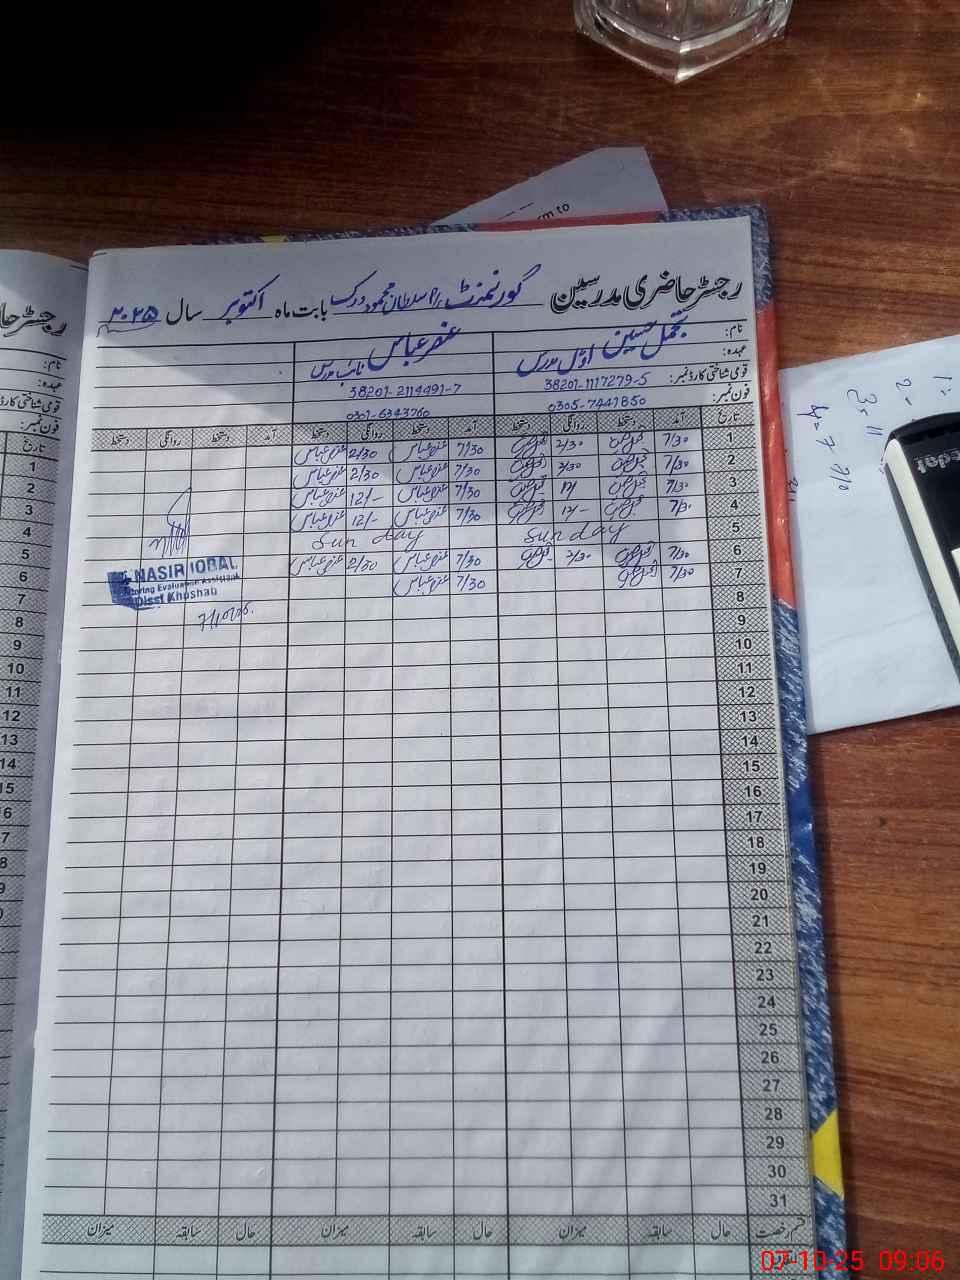 rm to
رجسٹر حاضری مدرسین گورنمنٹ پرائمری سلطان محمود ورکس بابت ماہ اکتوبر سال ۲۰۲۵
نام: تجمل حسین عنصر عباس
عہدہ: اوّل مدرس نائب مدرس
قومی شناختی کارڈ نمبر: 38201-1117279-5 38201-2114491-7
فون نمبر: 0305-7441850 0301-6343760
تاریخ آمد دستخط روانگی دستخط آمد دستخط روانگی دستخط آمد دستخط روانگی دستخط
1 7/30 2/30 7/30 عنصر عباس 2/30 عنصر عباس
2 7/30 2/30 7/30 عنصر عباس 2/30 عنصر عباس
3 7/30 12/ 7/30 عنصر عباس 12/- عنصر عباس
4 7/30 12/- 7/30 عنصر عباس 12/- عنصر عباس
5 Sunday Sunday
6 7/30 2/30 7/30 عنصر عباس 2/30 عنصر عباس
7 7/30 7/30 عنصر عباس
NASIR IQBAL
Monitoring Evaluation Assistant
Disst Khushab
7/10/025.
8
9
10
11
12
13
14
15
16
17
18
19
20
21
22
23
24
25
26
27
28
29
30
31
قسم رخصت حال سابقہ میزان حال سابقہ میزان حال سابقہ میزان
07-10-25 09:06